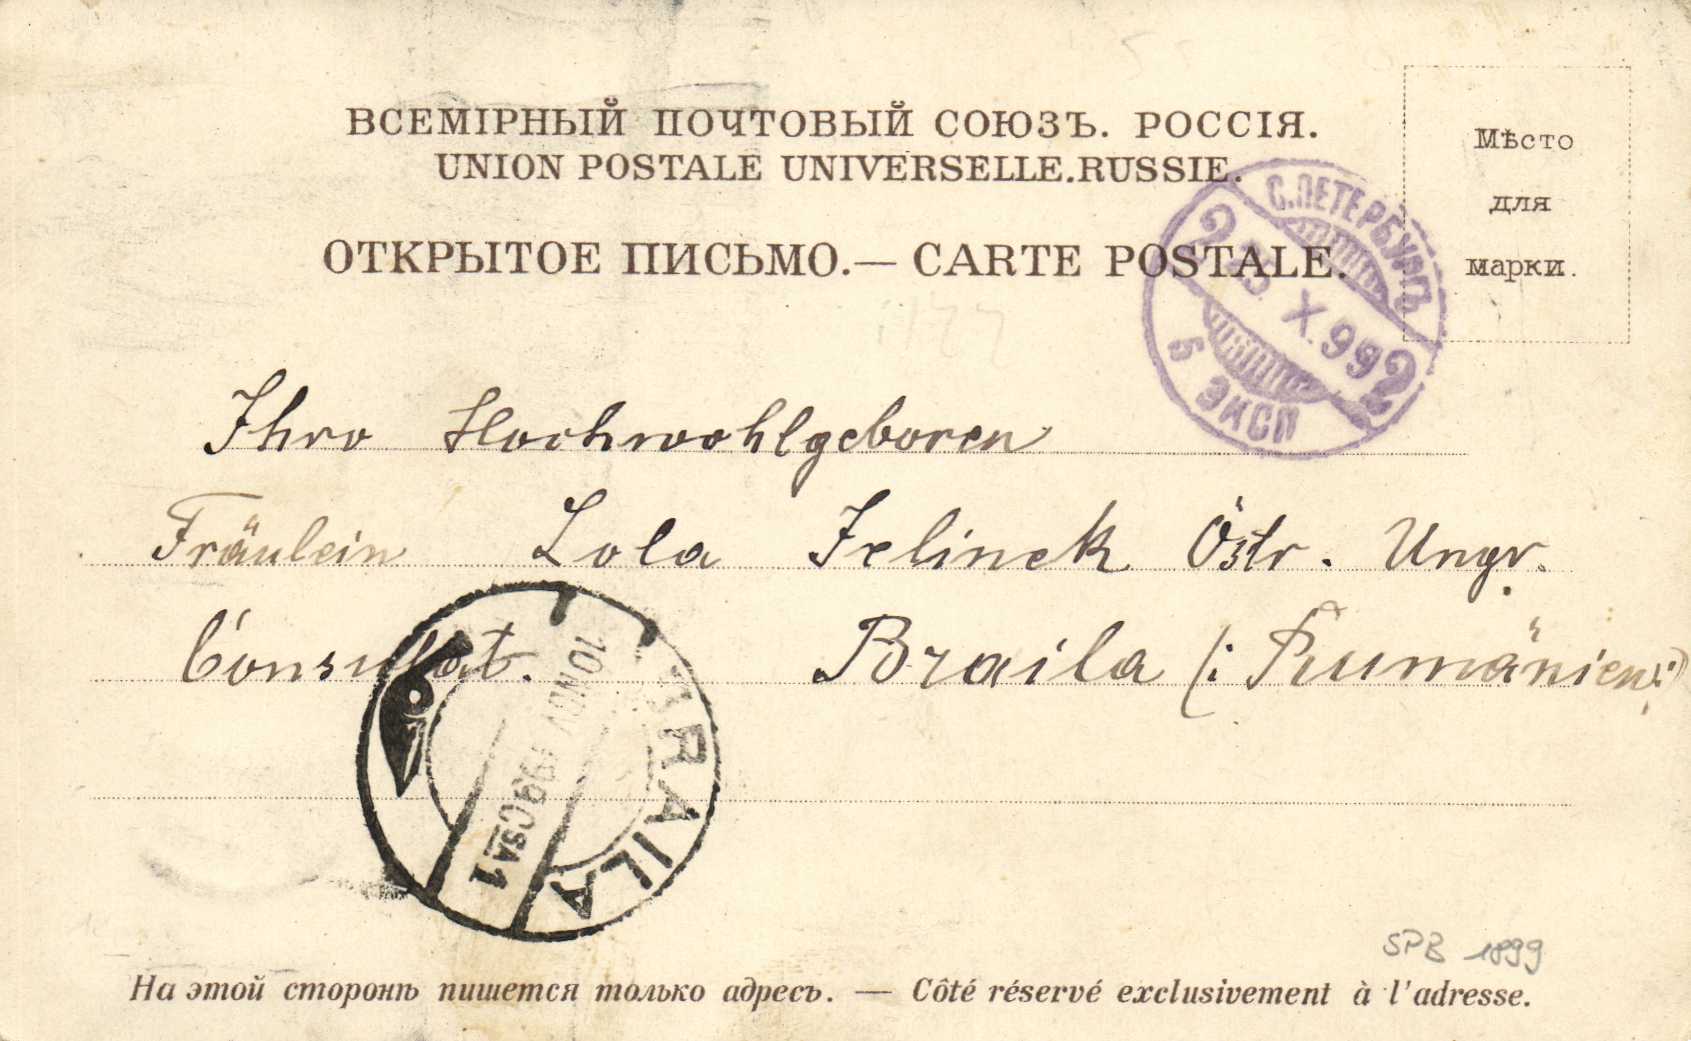 ВСЕМІРНЫЙ ПОЧТОВЫЙ СОЮЗЪ. РОССІЯ.
UNION POSTALE UNIVERSELLE.RUSSIE.
ОТКРЫТОЕ ПИСЬМО.— CARTE POSTALE.
Мѣсто
для
марки.
С.ПЕТЕРБУРГЪ
2 25. X. 99 2
5 ЭКСП
Ihro Hochwohlgeboren
Fräulein Lola Jelinek Östr. Ungr.
Consulat. Braila (: Rumänien :)
BRAILA
10 NOV 99
SPB 1899
На этой сторонѣ пишется только адресъ. — Côté réservé exclusivement à l'adresse.